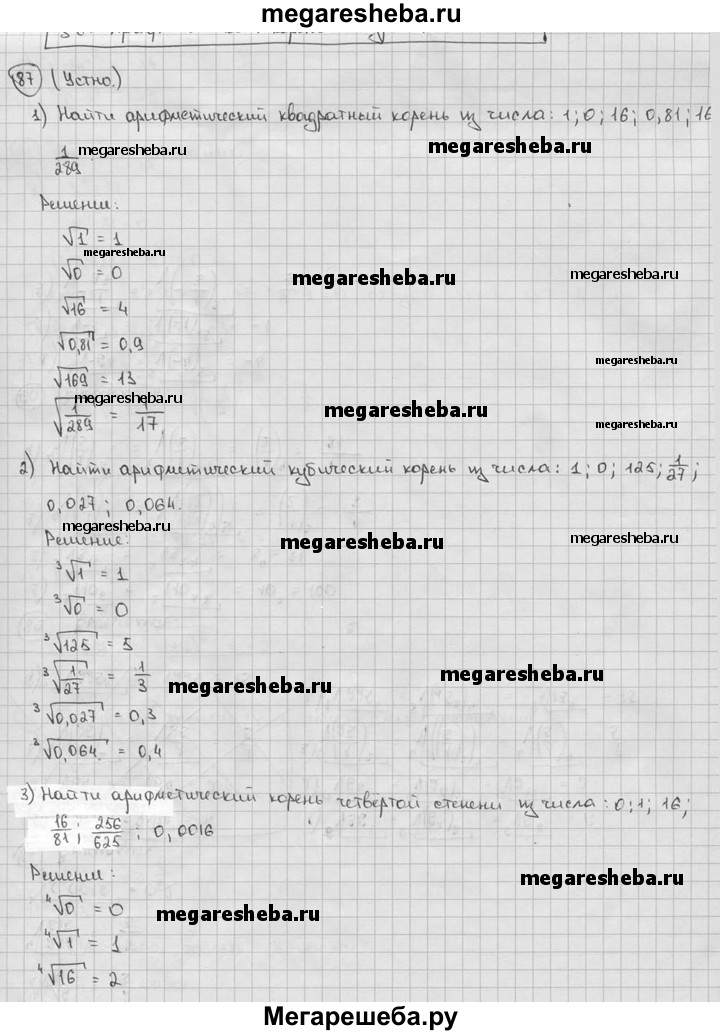 megaresheba.ru
87 (Устно.)
1) Найти арифметический квадратный корень из числа: 1; 0; 16; 0,81; 16
1/289 megaresheba.ru megaresheba.ru
Решение:
√1 = 1
megaresheba.ru
√0 = 0 megaresheba.ru megaresheba.ru
√16 = 4
√0,81 = 0,9 megaresheba.ru
√169 = 13
megaresheba.ru
√1/289 = 1/17. megaresheba.ru
2) Найти арифметический кубический корень из числа: 1; 0; 125; 1/27;
0,027; 0,064.
megaresheba.ru
Решение: megaresheba.ru megaresheba.ru
³√1 = 1
³√0 = 0
³√125 = 5
³√1/27 = 1/3 megaresheba.ru megaresheba.ru
³√0,027 = 0,3
³√0,064 = 0,4
3) Найти арифметический корень четвертой степени из числа: 0; 1; 16;
16/81; 256/625; 0,0016
Решение: megaresheba.ru
⁴√0 = 0 megaresheba.ru
⁴√1 = 1
⁴√16 = 2
Мегарешеба.ру